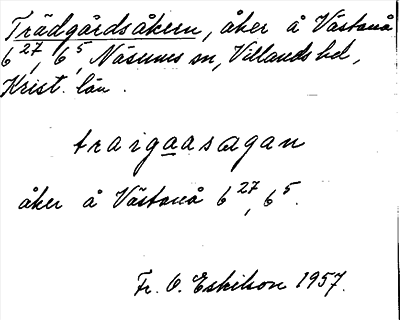 Trädgårdsåkern, åker å Västanå
6²⁷, 6⁵, Näsums sn, Villands hd,
Krist. län.
traigaasagan
åker å Västanå 6²⁷, 6⁵.
Fr. O. Eskilson 1957.